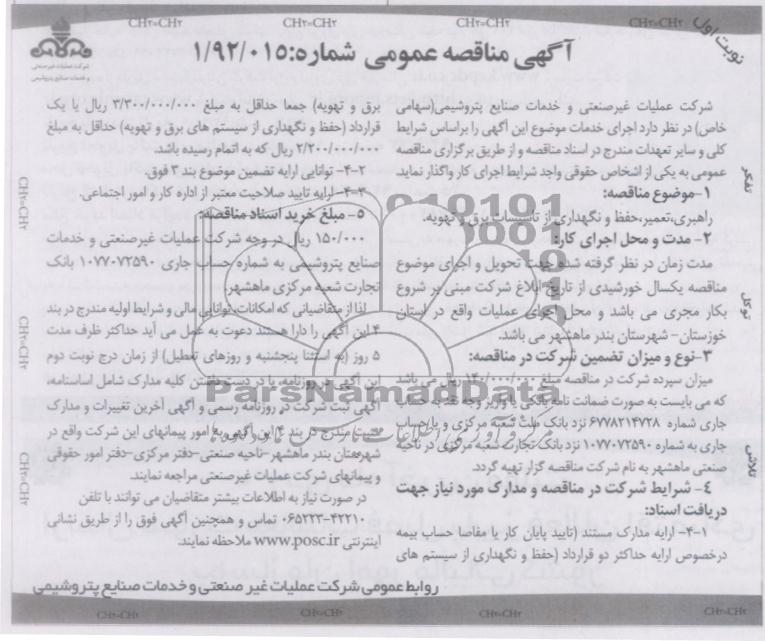 CH۲=CH۲ CH۲=CH۲ CH۲=CH۲ CH۲=CH۲
نوبت اول
آگهی مناقصه عمومی شماره:۱/۹۲/۰۱۵
شرکت عملیات غیرصنعتی
و خدمات صنایع پتروشیمی
شرکت عملیات غیرصنعتی و خدمات صنایع پتروشیمی(سهامی
خاص) در نظر دارد اجرای خدمات موضوع این آگهی را براساس شرایط
کلی و سایر تعهدات مندرج در اسناد مناقصه و از طریق برگزاری مناقصه
عمومی به یکی از اشخاص حقوقی واجد شرایط اجرای کار واگذار نماید.
۱-موضوع مناقصه:
راهبری،تعمیر،حفظ و نگهداری از تاسیسات برق و تهویه.
۲- مدت و محل اجرای کار:
مدت زمان در نظر گرفته شده جهت تحویل و اجرای موضوع
مناقصه یکسال خورشیدی از تاریخ ابلاغ شرکت مبنی بر شروع
بکار مجری می باشد و محل اجرای عملیات واقع در استان
خوزستان- شهرستان بندر ماهشهر می باشد.
۳-نوع و میزان تضمین شرکت در مناقصه:
میزان سپرده شرکت در مناقصه مبلغ ۱۴۰/۰۰۰/۰۰۰ ریال می باشد
که می بایست به صورت ضمانت نامه بانکی یا واریز وجه نقد به حساب
جاری شماره ۶۷۷۸۲۱۴۷۲۸ نزد بانک ملت شعبه مرکزی و یا حساب
جاری به شماره ۱۰۷۷۰۷۲۵۹۰ نزد بانک تجارت شعبه مرکزی در ناحیه
صنعتی ماهشهر به نام شرکت مناقصه گزار تهیه گردد.
۴- شرایط شرکت در مناقصه و مدارک مورد نیاز جهت
دریافت اسناد:
۱-۴- ارایه مدارک مستند (تایید پایان کار یا مفاصا حساب بیمه
درخصوص ارایه حداکثر دو قرارداد (حفظ و نگهداری از سیستم های
برق و تهویه) جمعا حداقل به مبلغ ۳/۳۰۰/۰۰۰/۰۰۰ ریال یا یک
قرارداد (حفظ و نگهداری از سیستم های برق و تهویه) حداقل به مبلغ
۲/۲۰۰/۰۰۰/۰۰۰ ریال که به اتمام رسیده باشد.
۲-۴- توانایی ارایه تضمین موضوع بند ۳ فوق.
۳-۴- ارایه تایید صلاحیت معتبر از اداره کار و امور اجتماعی.
۵- مبلغ خرید اسناد مناقصه:
۱۵۰/۰۰۰ ریال در وجه شرکت عملیات غیرصنعتی و خدمات
صنایع پتروشیمی به شماره حساب جاری ۱۰۷۷۰۷۲۵۹۰ بانک
تجارت شعبه مرکزی ماهشهر.
لذا از متقاضیانی که امکانات، توانایی مالی و شرایط اولیه مندرج در بند
۴ این آگهی را دارا هستند دعوت به عمل می آید حداکثر ظرف مدت
۵ روز (به استثنا پنجشنبه و روزهای تعطیل) از زمان درج نوبت دوم
این آگهی در روزنامه، با در دست داشتن کلیه مدارک شامل اساسنامه،
آگهی ثبت شرکت در روزنامه رسمی و آگهی آخرین تغییرات و مدارک
مثبت مندرج در بند ۴ این آگهی به امور پیمانهای این شرکت واقع در
شهرستان بندر ماهشهر-ناحیه صنعتی-دفتر مرکزی-دفتر امور حقوقی
و پیمانهای شرکت عملیات غیرصنعتی مراجعه نمایند.
در صورت نیاز به اطلاعات بیشتر متقاضیان می توانند با تلفن
۴۲۲۱۰-۰۶۵۲۲۳ تماس و همچنین آگهی فوق را از طریق نشانی
اینترنتی www.posc.ir ملاحظه نمایند.
روابط عمومی شرکت عملیات غیر صنعتی و خدمات صنایع پتروشیمی
تفکر
توکل
تلاش
CH۲=CH۲
CH۲=CH۲
CH۲=CH۲
CH۲=CH۲ CH۲=CH۲ CH۲=CH۲ CH۲=CH۲
ParsNamadData